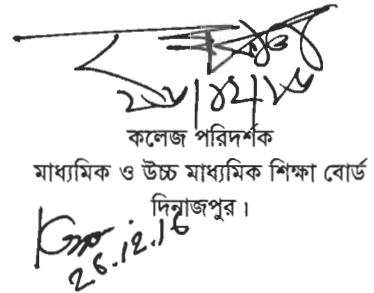 কলেজ পরিদর্শক
মাধ্যমিক ও উচ্চ মাধ্যমিক শিক্ষা বোর্ড
দিনাজপুর।
26.12.16